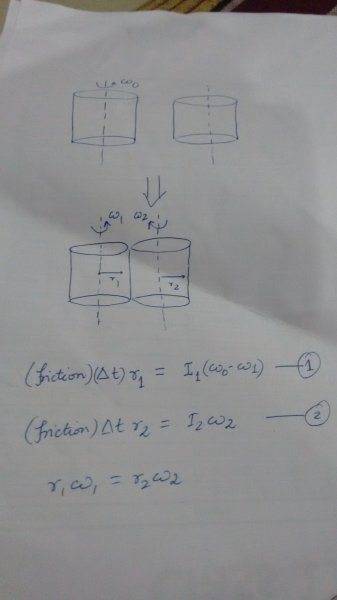 ω₀
ω₁ ω₂
r₁ r₂
(friction)(Δt) r₁ = I₁(ω₀-ω₁) —①
(friction)Δt r₂ = I₂ω₂ —②
r₁ω₁ = r₂ω₂